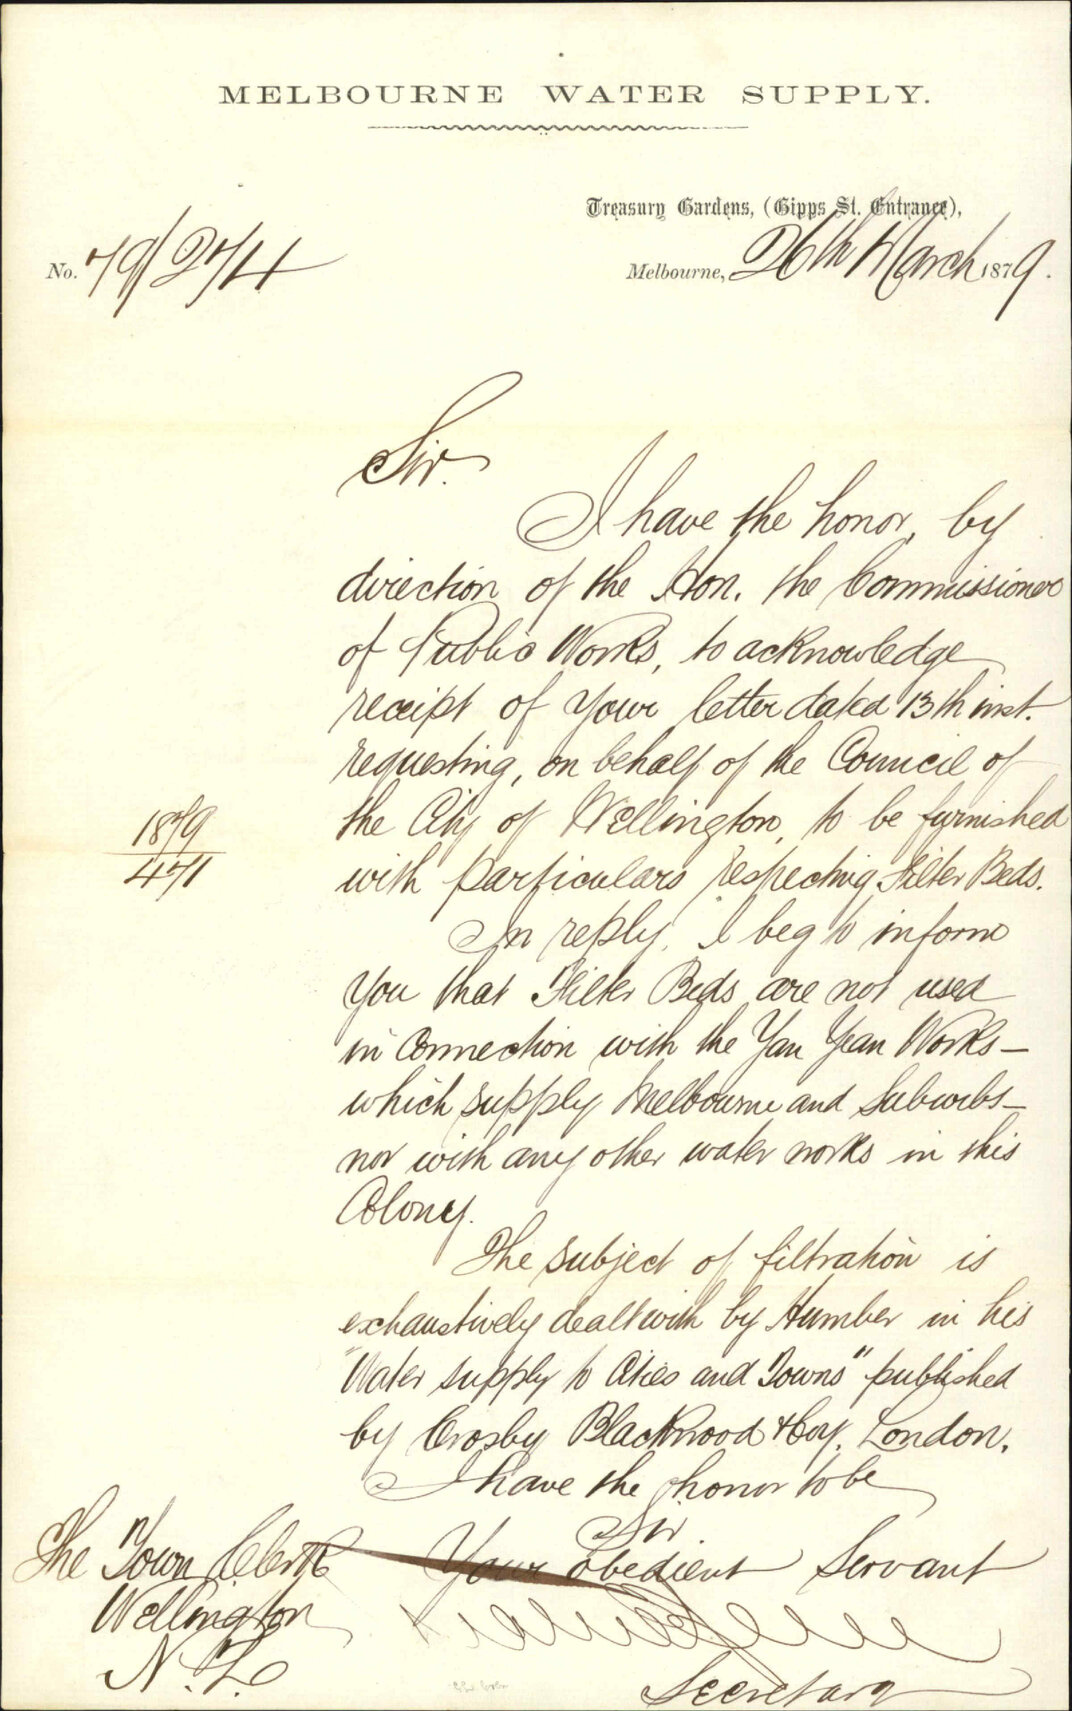 MELBOURNE WATER SUPPLY.
Treasury Gardens, (Gipps St. Entrance),
No. 79/274
Melbourne, 26th March 1879.
Sir.
I have the honor, by
direction of the Hon. the Commissioner
of Public Works, to acknowledge
receipt of your letter dated 13th inst.
requesting, on behalf of the Council of
the City of Wellington, to be furnished
with particulars respecting Filter Beds.
1879
471
In reply, I beg to inform
you that Filter Beds are not used
in connection with the Yan Yean Works—
which supply Melbourne and Suburbs—
nor with any other water works in this
Colony.
The subject of filtration is
exhaustively dealt with by Humber in his
"Water supply to Cities and Towns" published
by Crosby Blackwood & Coy. London.
I have the honor to be
Sir.
Your obedient Servant
Secretary
The Town Clerk
Wellington
N.Z.